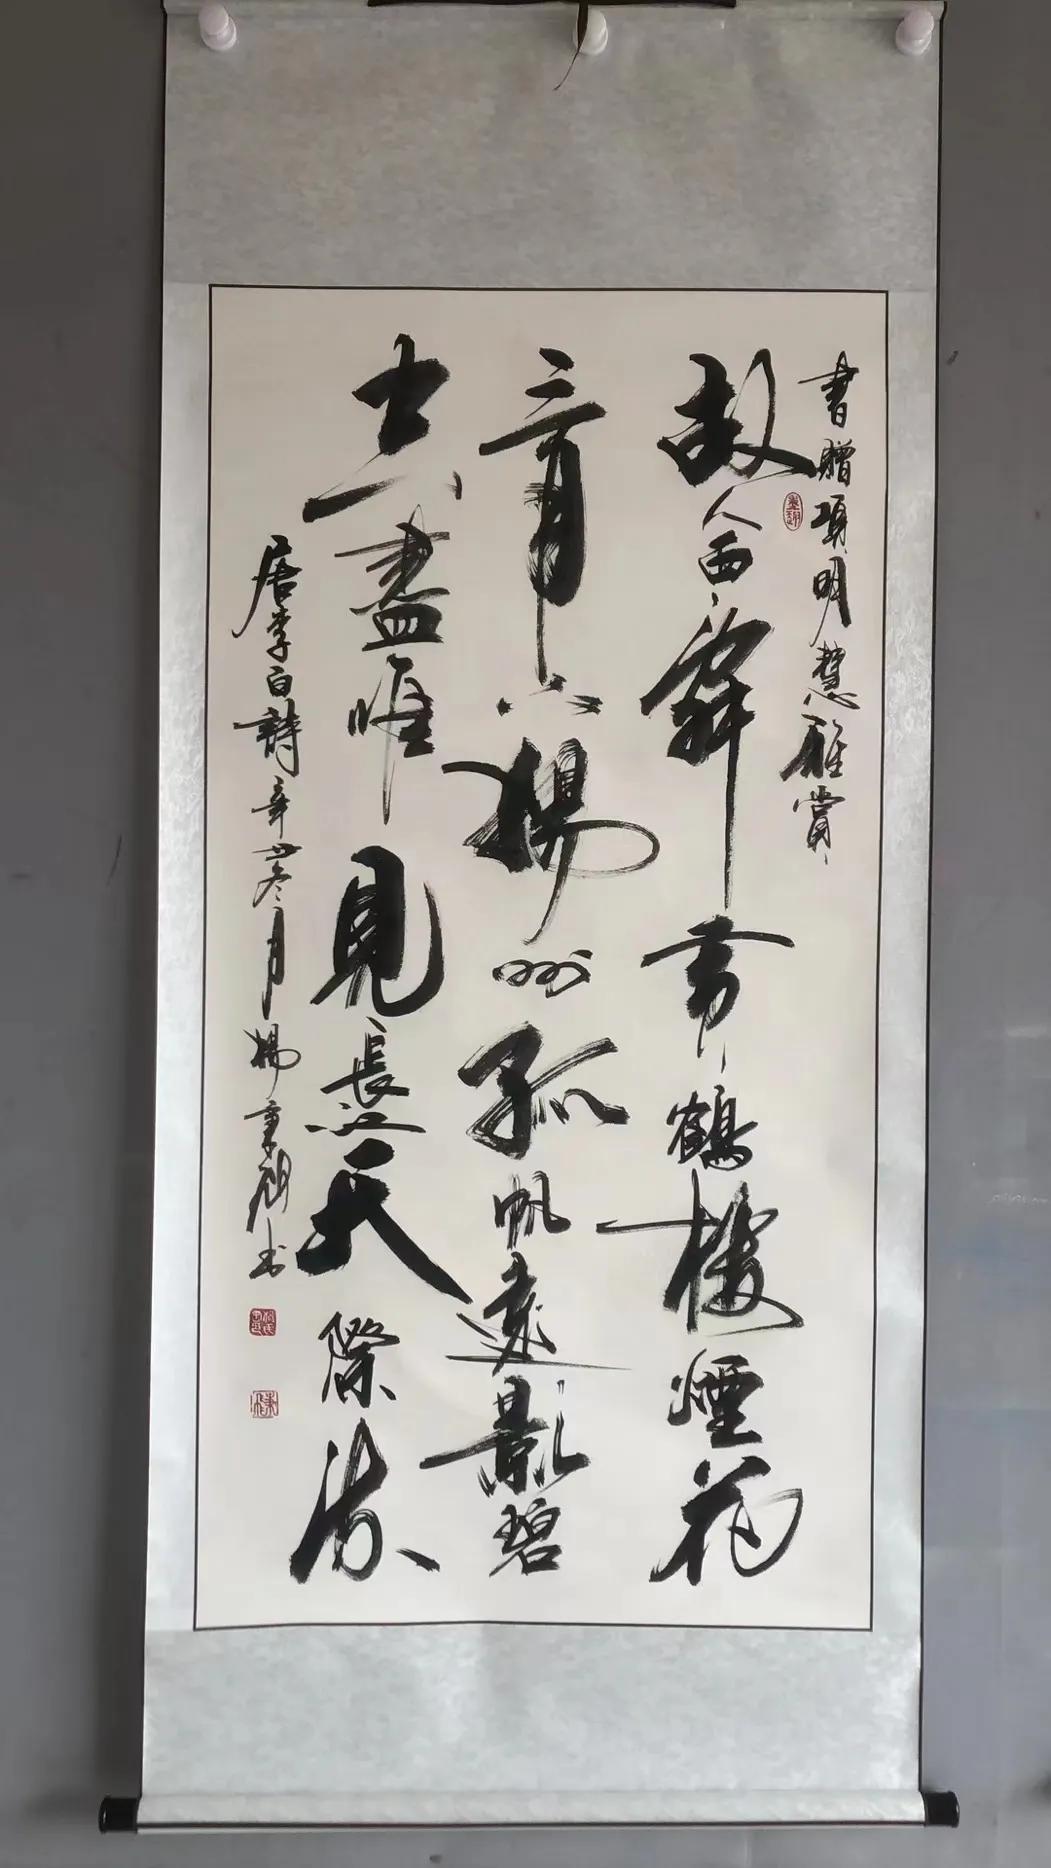 書贈項明慧雅賞
故人西辭黃鶴樓煙花
三月下揚州孤帆遠影碧
山盡唯見長江天際流
唐李白詩辛丑冬月楊秉祖书